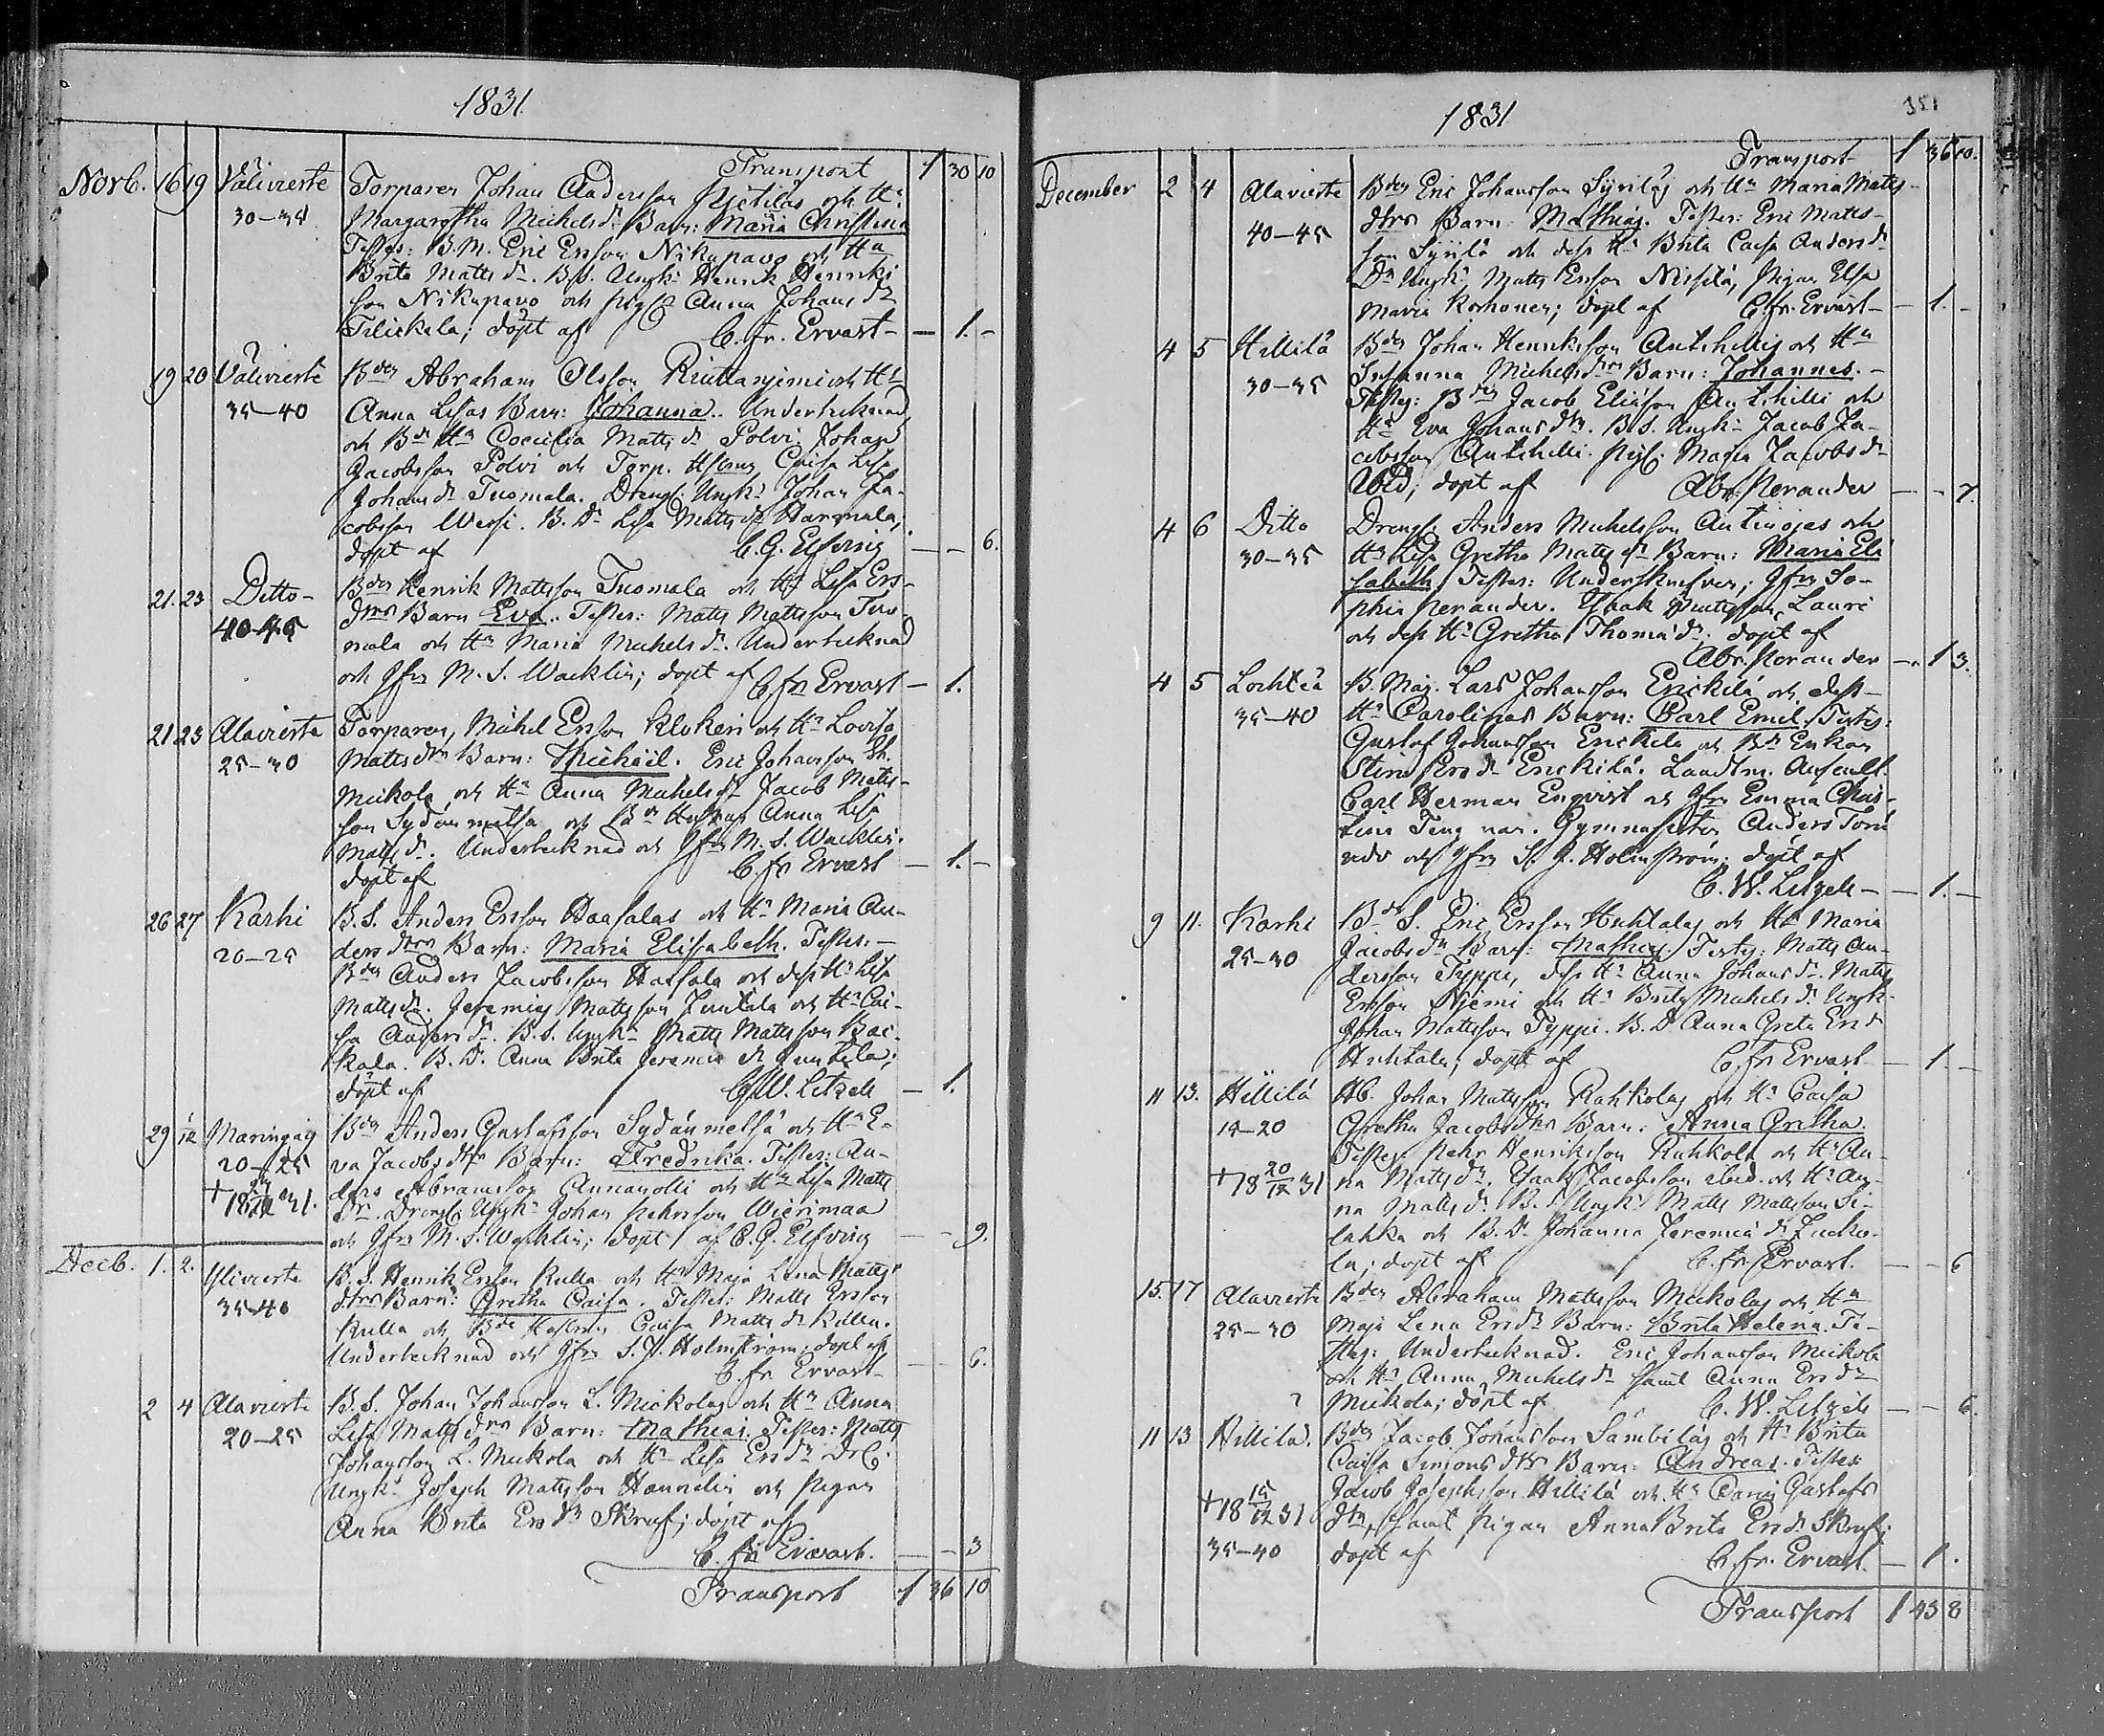 1831
Transport 1 30 10
Novb. 16 19 Välivieste Torparen Johan Andersson Pjetiläs och H:u
30–35 Margaretha Michelsdr Barn: Maria Christina
Testes: B.M. Eric Ersson Nikupavo och H:u
Brita Mattsdr. B.S. Ungk: Henrik Henriks
son Nikupavo och pig: Anna Johansdr
döpt af C. fr. Ervast — 1. –
19 20 Välivieste Bden Abraham Olsson och H:u
35–40 Anna Lisas Barn: Johanna. Undertecknad
och Bd: H:u Coecilia Mattsdr Polvi, Johan
Jacobsson Polvi och Torp. Hustrun Caisa Lisa
Johansdr Tuomala. Dreng: Ungk: Johan Ja-
cobsson B. Dr Lisa Mattsdr
döpt af C. G. Elfving — – 6.
21. 23 Ditto – Bden Henrik Mattsson Tuomala och H:u Lisa Ers-
40–45 dtrs Barn Eva. Testes: Matts Mattsson Tuo
mala och H:u Maria Michelsdr. Undertecknad
och Jfru M. S. Wacklin; döpt af C. fr Ervast — 1.
21 23 Alavieste Torparen, Michel Ersson och H:u Lovisa
25–30 Mattsdtrs Barn: Michäil. Eric Johansson
Mickola, och H:u Anna Michelsdr Jacob Matts-
son Sydänmetsä och Bde Hustrun Anna Lisa
Mattsdr. Undertecknad och Jfru M. S. Wacklin.
döpt af C. fr Ervast — 1. –
26 27 Karhi B. S. Anders Ersson Haasalas och H:u Maria An-
20–25 dersdtrs Barn: Maria Elisabeth. Testes: –
Bden Anders Jacobsson Haasala och dess H:u Lisa
Mattsdr. Jeremias Mattsson Juntila och H:u Cai-
sa Andersdr. B. S. Ungk: Matts Mattsson
B. Dr. Anna Brita Jeremiæ dr Juntila;
döpt af C. W. Litzeli — 1.
29 1/12 Bden Anders Gustafsson Sydänmetsä och H:u E-
20–25 va Jacobsdtrs Barn: Fredrika. Testes: An-
ders Abramsson Annanolli och H:u Lisa Matts
dr. Dreng: Ungk: Johan Pehrsson Wierimaa
och Jfru M. S. Wacklin; döpt af C. G. Elfving — – 9.
Decb. 1. 2. Ylivieste B. S. Henrik Ersson Kulla och H:u Maja Lena Matts
35–40 dtrs Barn: Gretha Caisa. Testes: Matts Ersson
Kulla och Bde Hustrun Caisa Mattsdr
Undertecknad och Jfru S. J. Holmström; döpt af
C. fr Ervast — – 6.
2 4 Alavieste B. S. Johan Johansson L. Mickolas och H:u Anna
20–25 Lisa Mattsdtrs Barn: Mathias. Testes: Matts
Johansson L. Mickola och H:u Lisa Ersdr
Ungk: Joseph Mattsson och Pigan
Anna Brita Ersdr Skruf; döpt af
C. fr Ervast. — – 3
Transport 1 36 10
1831
Transport 1 36 10.
December 2 4 Alavieste Bden Eric Johansson och H:u Maria Matts-
40–45 dtrs Barn: Mathias. Testes: Eric Matts-
son och dess H:u Brita Caisa Andersdr
Ungk: Matts Ersson Pigan Elsa
Maria Korhonen; döpt af C. fr. Ervast — 1. –
4 5 Hillilä Bden Johan Henriksson Antihillis och H:u
30–35 Susanna Michelsdtrs Barn: Johannes. –
Testes: Bden Jacob Eliasson Antihilli och
H:u Eva Johansdtr. B. S. Ungk: Jacob Ja-
cobsson Antihilli. Pig: Maria Jacobsdr
ibid; döpt af Abr. Perander — – 7.
4 6 Ditto Dreng: Anders Michelsson Antinojas och
30–35 H:u Lisa Gretha Mattsdr Barn: Maria Eli
sabeth. Testes: Underskrifven; Jfru So-
phia Perander. Isaak Lauri
och dess H:u Gretha Thomædr. döpt af
Abr. Perander — 1 3.
4 5 Lochteå B. Måg. Lars Johansson Erickilä och dess
35–40 H:u Carolinas Barn: Carl Emil. Testes:
Gustaf Johansson Erickila och Bde Enkan
Stina Ersdr Erickilä. Landtm. Auscult.
Carl Herman Enqvist och Jfru Emma Chris-
tina Gymnasisten Anders
och Jfru S. J. Holmström; döpt af
C. W. Litzeli — 1. –
9 11. Karhi Bde S. Eric Ersson Huhtalas och H:u Maria
25–30 Jacobsdr Barn: Mathias. Testes: Matts An-
dersson Typpi, dess H:u Anna Johansdr. Matts
Ersson Njemi och H:u Brita Michelsdr Ungk:
Johan Mattsson Typpi. B. D. Anna Greta Ersdr
Huhtala; döpt af C. fr Ervast — 1. –
11 13. Hillilä Johan Mattsson Rahkolas och H:u Caisa
15–20 Gretha Jacobsdtrs Barn: Anna Gretha.
Testes: Pehr Henriksson Rahkola och H:u An-
+ 18 20/12 31 na Mattsdr. Isaak Jacobsson ibid. och H:u An-
na Mattsdr B. S. Ungk: Matts Mattsson Si-
lakka och B. Dr Johanna Jeremiædr
döpt af C. fr Ervast. — – 6
15. 17 Alavieste Bden Abraham Mattsson Mickolas och H:u
25–30 Maja Lena Ersdr Barn: Brita Helena. Te-
stes: Undertecknad. Eric Johansson Mickola
och H:u Anna Michelsdr samt Anna Ersdr
Mickola; döpt af C. W. Litzeli — – 6.
11 13 Hillilä. Bden Jacob Johansson Sämbiläs och H:u Brita
Caisa Simonsdtrs Barn: Andreas. Testes:
+ 18 15/12 31 Jacob Josephsson Hillilä och H:u Carin Gustafs
dtr, samt Pigan Anna Brita Ersdr Skruf;
35–40 döpt af C. fr. Ervast. — 1.
Transport 1 43 8